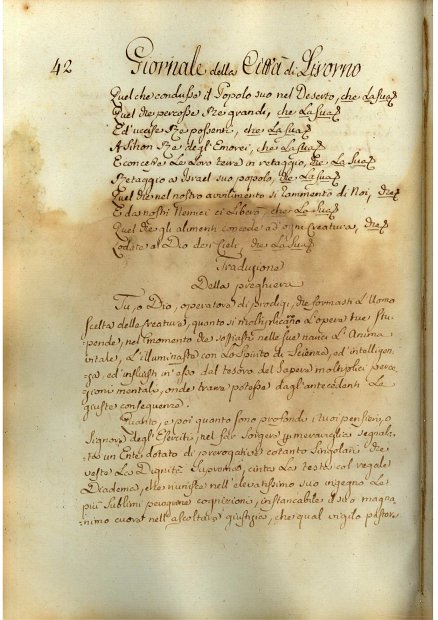 42 Giornale della Città di Livorno
Quel che condusse il Popolo suo nel Deserto, che La Sua
Quel che percosse Rè grandi, che La Sua
Ed uccise Rè possenti, che La Sua
A Sihon Rè degl' Emorei, che La Sua
E concesse Le Loro terre in retaggio, che La Sua
Retaggio a Israel suo popolo, che La Sua
Quel che nel nostro avvilimento si rammentò di Noi, che
E da nostri Nemici ci Liberò che La Sua
Quel che gli alimenti concede ad ogni Creatura, che
Lodate il Dio de i Cieli, che La Sua
Traduzione
Della preghiera
Tu, o Dio, operatore di prodigj, che formasti L'Uomo
scelta delle creature, quanto si moltiplicano L'opere tue stu-
pende, nel momento che soffiasti nelle sue narici L'Anima
vitale, L'illuminasti con Lo Spirito di Scienza, ed intelligen-
za, ed influisti in esso dal tesoro del Sapere molteplici
cezioni mentali, onde trarre potesse dagl' antecedenti Le
giuste conseguenze.
Quanto, e poi quanto sono profondi i tuoi pensieri, o
Signore degl' Eserciti, nel far sorgere meraviglia segnala-
ta un Ente dotato di prerogative cotanto Singolari che
veste La Dignità Suprema, cinta La testa col regale
Diadema, che munisti nell' elevatissimo suo ingegno Le
più Sublimi peregrine cognizioni, instancabile il suo magna-
nimo cuore nell' ascoltare giustizia, che qual vigile pastore